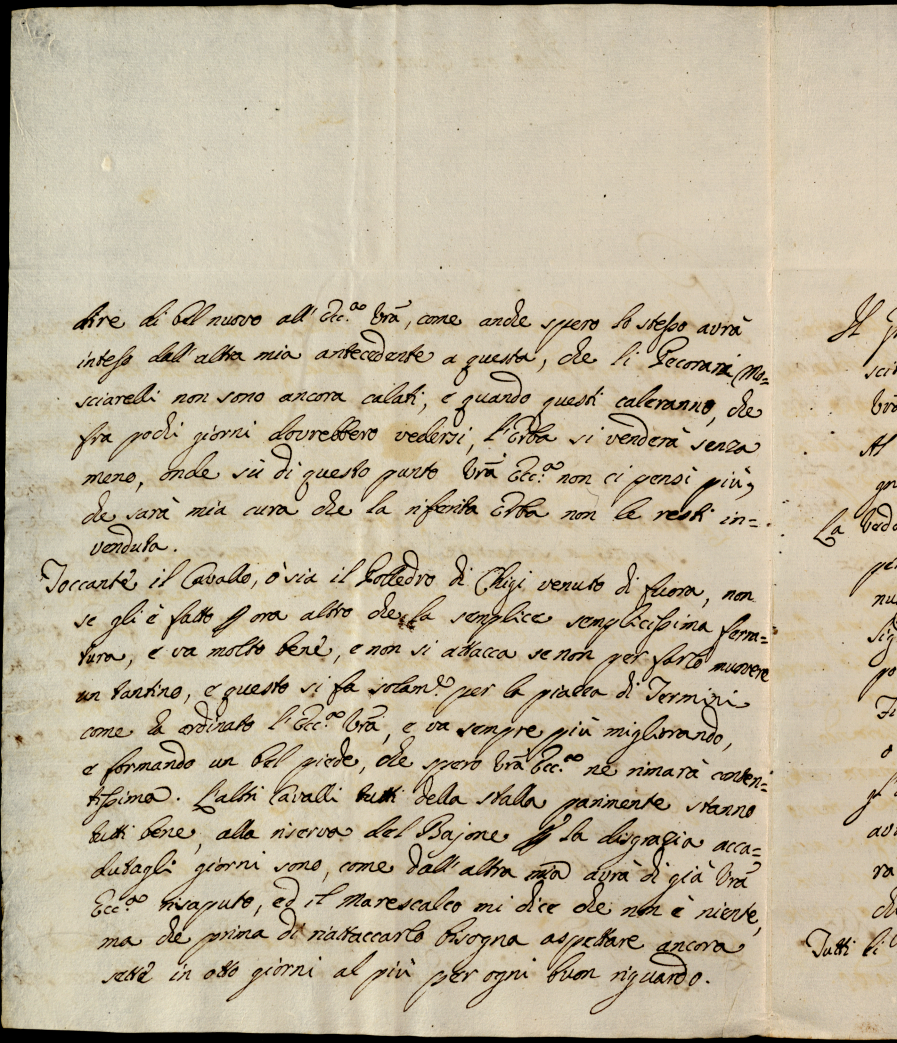 dire di bel nuovo all' Ecc.ᵃ Vrã, come anche spero lo stesso avrà
inteso dall'altra mia antecedente a questa, che li Pecorari Mo=
sciarelli non sono ancora calati, e quando questi caleranno, che
fra pochi giorni dovrebbero vedersi, l'Erba si venderà senza
meno, onde sù di questo punto Vrã Ecc.ᵃ non ci pensi più,
che sarà mia cura che la riferita Erba non le resti in=
venduta.
Toccante il Cavallo, ò sia il Polledro di Chigi venuto di fuora, non
se gli è fatto ꝑ ora altro che la semplice semplicissima ferra=
tura, e va molto bene, e non si attacca se non per farlo muovere
un tantino, e questo si fa solam.ᵉ per la piazza di Termini
come hà ordinato l'Ecc.ᵃ Vrã, e va sempre più migliorando,
e formando un bel piede, che spero Vrã Ecc.ᵃ ne rimarà conten=
tissima. L'altri Cavalli tutti della stalla parimente stanno
tutti bene, alla riserva del Bajone ꝑ la disgrazia acca=
dutagli giorni sono, come dall'altra mia avrà di già Vrã
Ecc.ᵃ risaputo, ed il Marescalco mi dice che non è niente,
ma che prima di riattaccarlo bisogna aspettare ancora
sette in otto giorni al più per ogni buon riguardo.
Il
Al
La
Tutti li